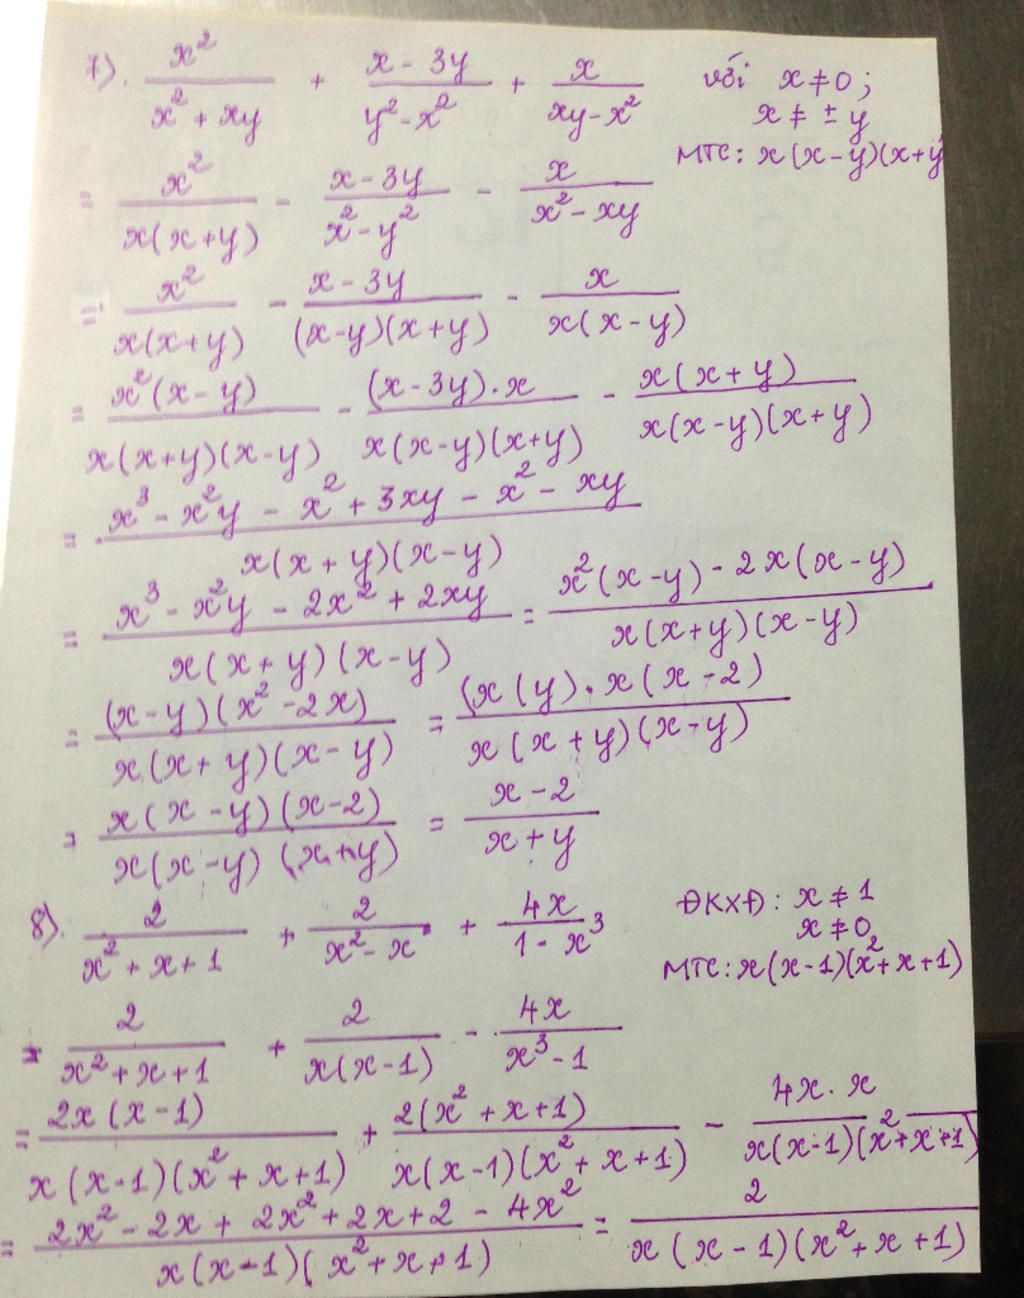 7). x²/(x² + xy) + (x - 3y)/(y² - x²) + x/(xy - x²) với x ≠ 0 ;
x ≠ ± y
MTC: x(x-y)(x+y)
= x²/(x(x+y)) - (x-3y)/(x² - y²) - x/(x² - xy)
= x²/(x(x+y)) - (x-3y)/((x-y)(x+y)) - x/(x(x-y))
= x²(x-y)/(x(x+y)(x-y)) - (x-3y).x/(x(x-y)(x+y)) - x(x+y)/(x(x-y)(x+y))
= (x³ - x²y - x² + 3xy - x² - xy)/(x(x+y)(x-y))
= (x³ - x²y - 2x² + 2xy)/(x(x+y)(x-y)) = (x²(x-y) - 2x(x-y))/(x(x+y)(x-y))
= (x-y)(x² - 2x)/(x(x+y)(x-y)) = (x(y).x(x-2)/(x(x+y)(x-y))
= x(x-y)(x-2)/(x(x-y)(x+y)) = (x-2)/(x+y)
8). 2/(x² + x + 1) + 2/(x² - x) + 4x/(1 - x³) ĐKXĐ: x ≠ 1
x ≠ 0
MTC: x(x-1)(x²+x+1)
= 2/(x² + x + 1) + 2/(x(x-1)) - 4x/(x³ - 1)
= 2x(x-1)/(x(x-1)(x²+x+1)) + 2(x²+x+1)/(x(x-1)(x²+x+1)) - 4x.x/(x(x-1)(x²+x+1))
= (2x² - 2x + 2x² + 2x + 2 - 4x²)/(x(x-1)(x²+x+1)) = 2/(x(x-1)(x²+x+1))